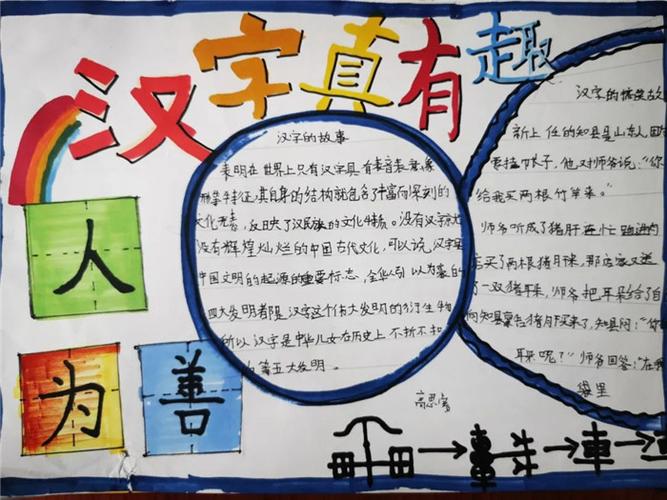 汉字真有趣
汉字的故事
表明在世界上只有汉字具有表音表意像
形等特征,其自身的结构就包含了丰富而深刻的
文化 反映了汉民族的文化特质。没有汉字就
没有辉煌灿烂的中国古代文化,可以说,汉字是
中国文明的起源的重要标志,全 以为豪的
四大发明者都是汉字这个伟大发明的衍生物
所以汉字是中华儿女在历史上不折不扣
第五大发明。
汉字的搞笑故
新上任的知县是山东人,因
要挂帐子,他对师爷说:“你
给我买两根竹竿来。”
师爷听成了猪肝连忙跑进肉
店买了两根猪 来,那店家又送
了一双猪耳朵,师爷把耳朵给了自
向知县禀 猪 买来了,知县问:“你
耳朵呢?”师爷回答:“在我
袋里
人
为
善
高思
車